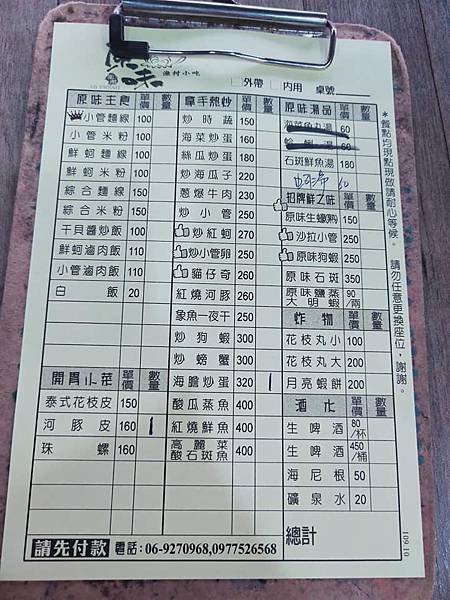 原味
漁村小吃
□外帶 □內用 桌號
原味主食 單價 數量
小管麵線 100
小管米粉 100
鮮蚵麵線 100
鮮蚵米粉 100
綜合麵線 150
綜合米粉 150
干貝醬炒飯 100
鮮蚵滷肉飯 110
小管滷肉飯 110
白飯 20
開胃小菜 單價 數量
泰式花枝皮 150
河豚皮 160 1
珠螺 160
拿手熱炒 單價 數量
炒時蔬 150
海菜炒蛋 160
絲瓜炒蛋 180
炒海瓜子 220
蔥爆牛肉 230
炒小管 250
炒紅蚵 270
炒小管卵 250
貓仔奇 260
紅燒河豚 260
象魚一夜干 250
炒狗蝦 300
炒螃蟹 300
海膽炒蛋 320 1
酸瓜蒸魚 400
紅燒鮮魚 400
高麗菜酸石斑魚 400
原味湯品 單價 數量
海菜魚丸湯 60
蛤蜊湯 60
石斑鮮魚湯 180
蚵湯 60
招牌鮮之味 單價 數量
原味生蠔 150
沙拉小管 250
原味狗蝦 250
原味石斑 350
原味鹽蒸大明蝦 90/兩
炸物 單價 數量
花枝丸小 100
花枝丸大 200
月亮蝦餅 200
酒水 單價 數量
生啤酒 80/杯
生啤酒 450/桶
海尼根 50
礦泉水 20
總計
請先付款 電話:06-9270968,0977526568
*餐點均現點現做請耐心等候。 請勿任意更換座位,謝謝。
109.10